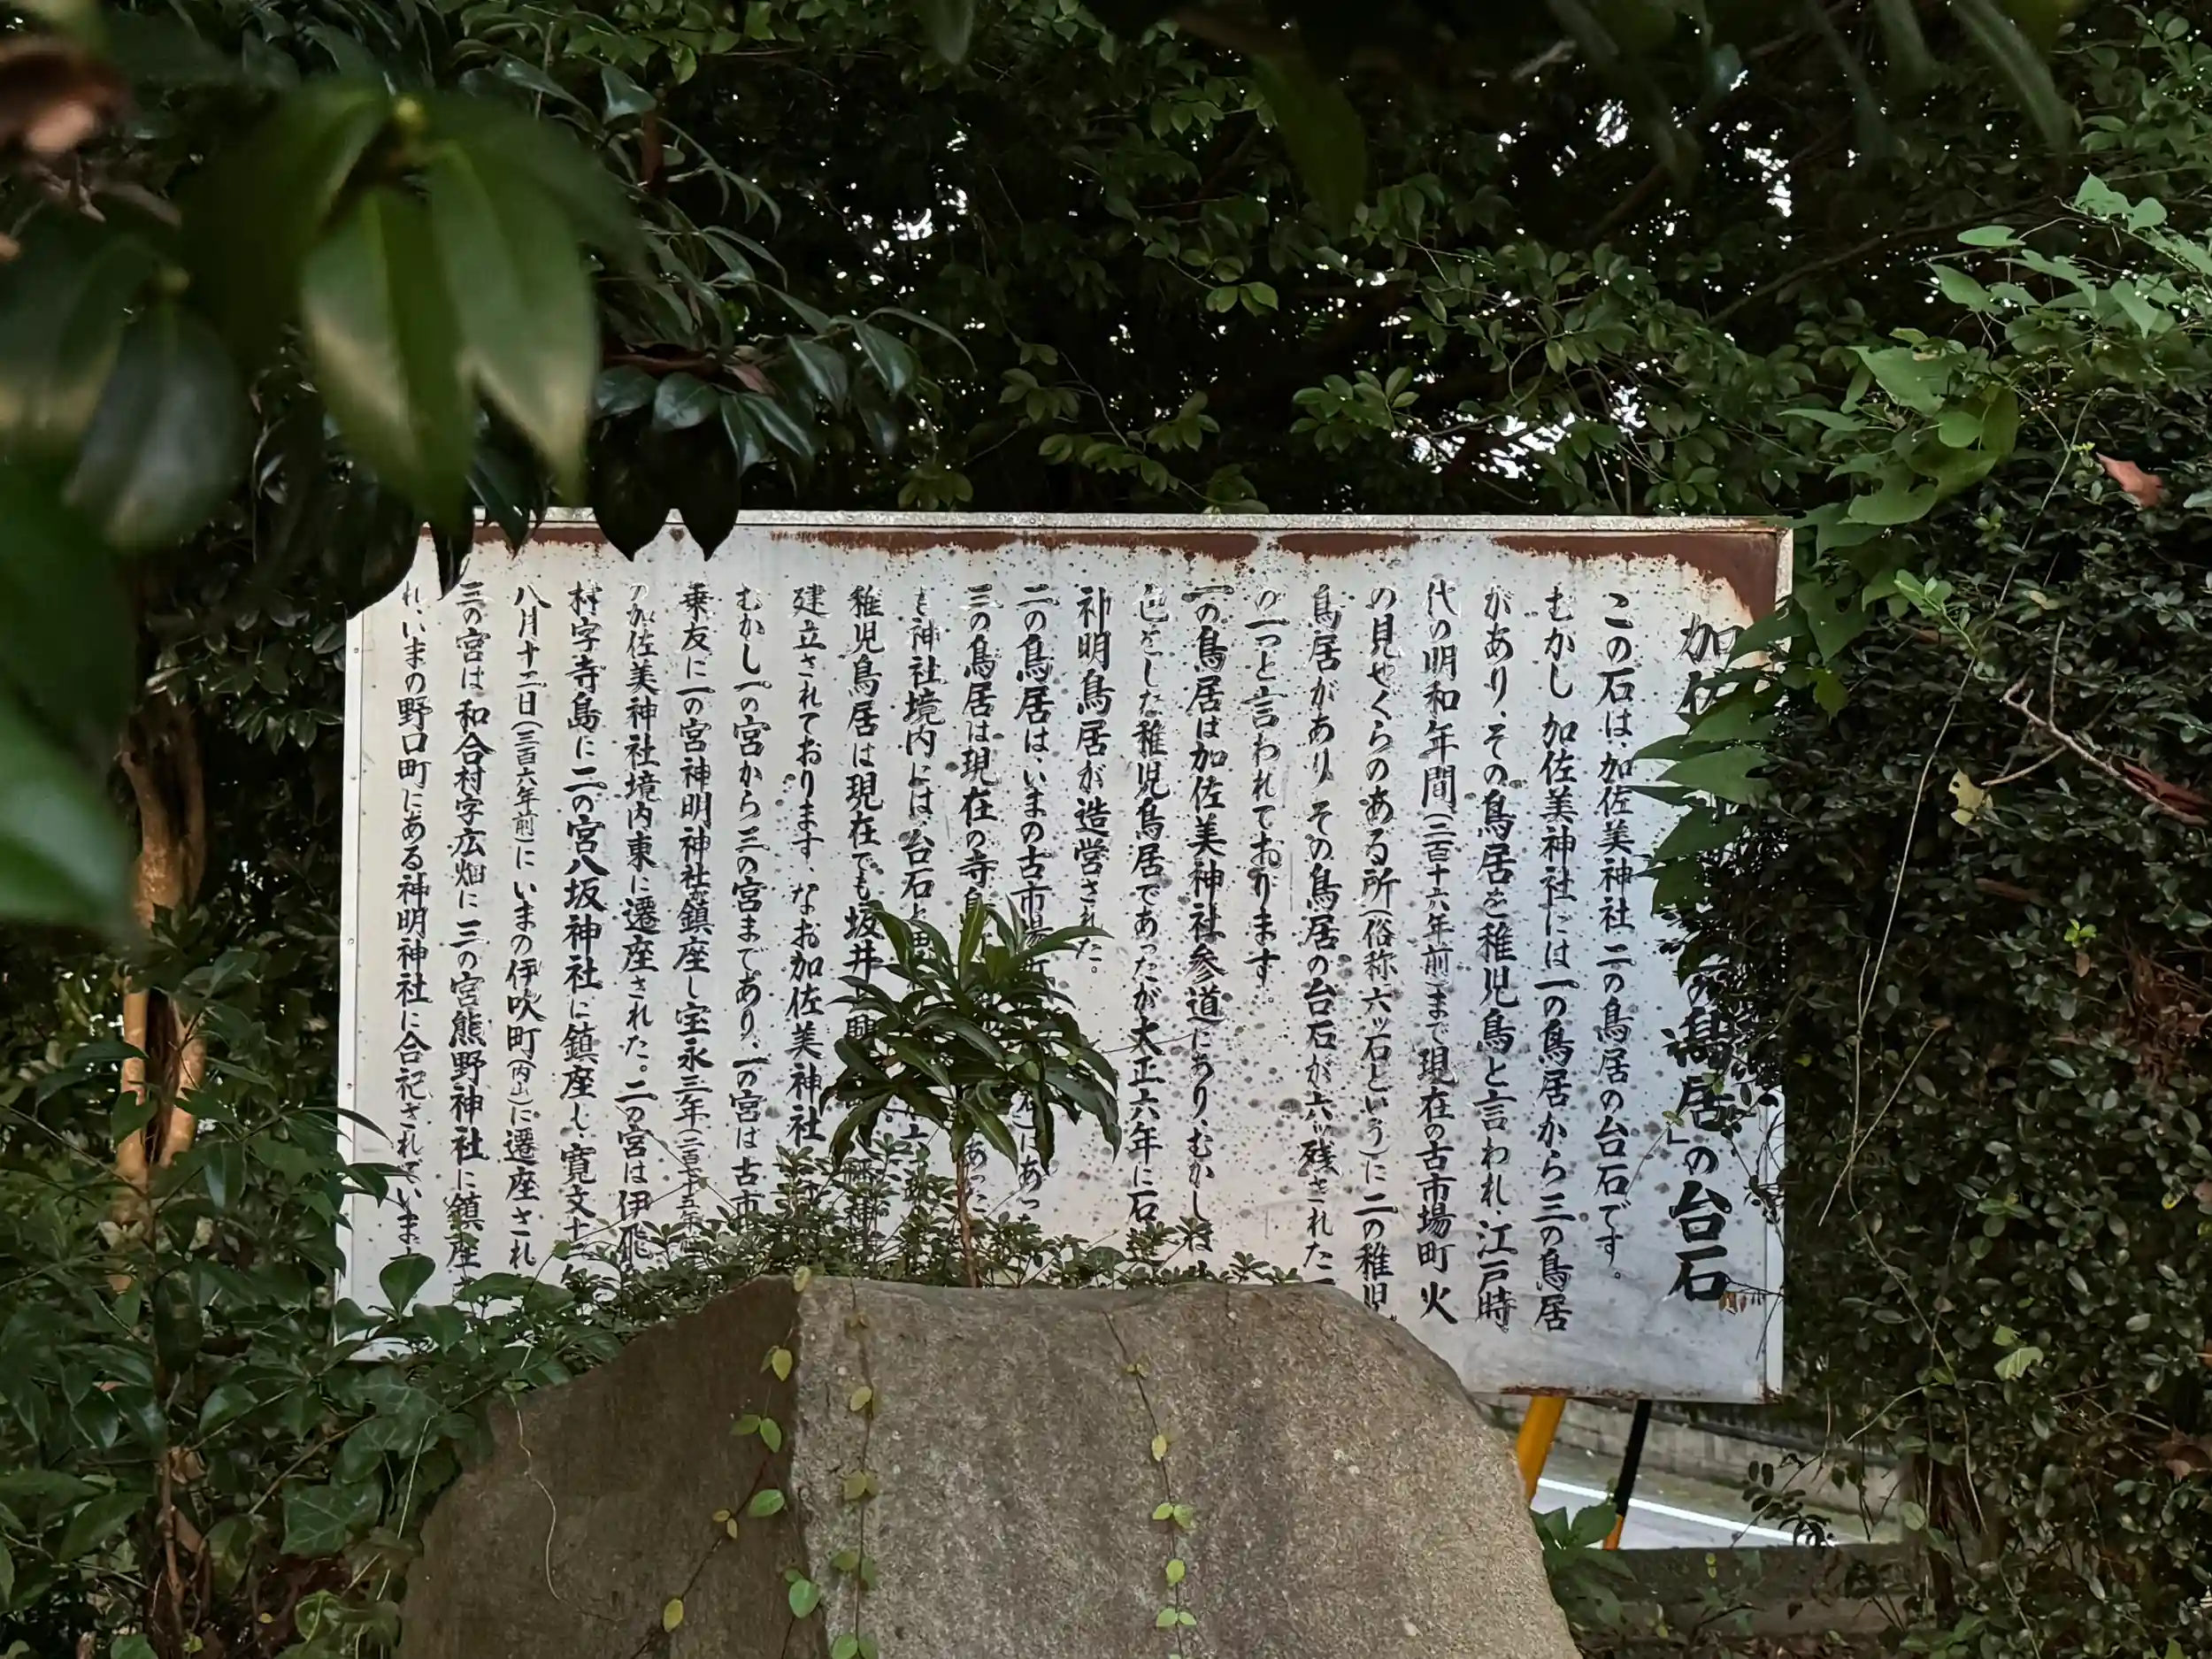 加佐 の鳥居」の台石
この石は、加佐美神社二の鳥居の台石です。
むかし加佐美神社には一の鳥居から三の鳥居
があり、その鳥居を稚児鳥と言われ、江戸時
代の明和年間(二百十六年前)まで現在の古市場町火
の見やくらのある所(俗称六ッ石という)に二の稚児
鳥居がありその鳥居の台石が六ッ残された
の一つと言われております。
一の鳥居は加佐美神社参道にあり、むかしは
色をした稚児鳥居であったが大正六年に石造
神明鳥居が造営された。
二の鳥居は、いまの古市場 石)にあっ
三の鳥居は現在の寺島 あった
も神社境内には、台石と
稚児鳥居は現在でも坂井
建立されております、なお加佐美神社
むかし一の宮から三の宮まであり、一の宮は古市
乗友に一の宮神明神社鎮座し宝永三年(二百七十五年
の加佐美神社境内東に遷座された。二の宮は伊飛
村字寺島に二の宮八坂神社に鎮座し寛文十二年
八月十二日(三百六年前)にいまの伊吹町(内山)に遷座され
三の宮は和合村字広畑に三の宮熊野神社に鎮座
れ、いまの野口町にある神明神社に合祀されています